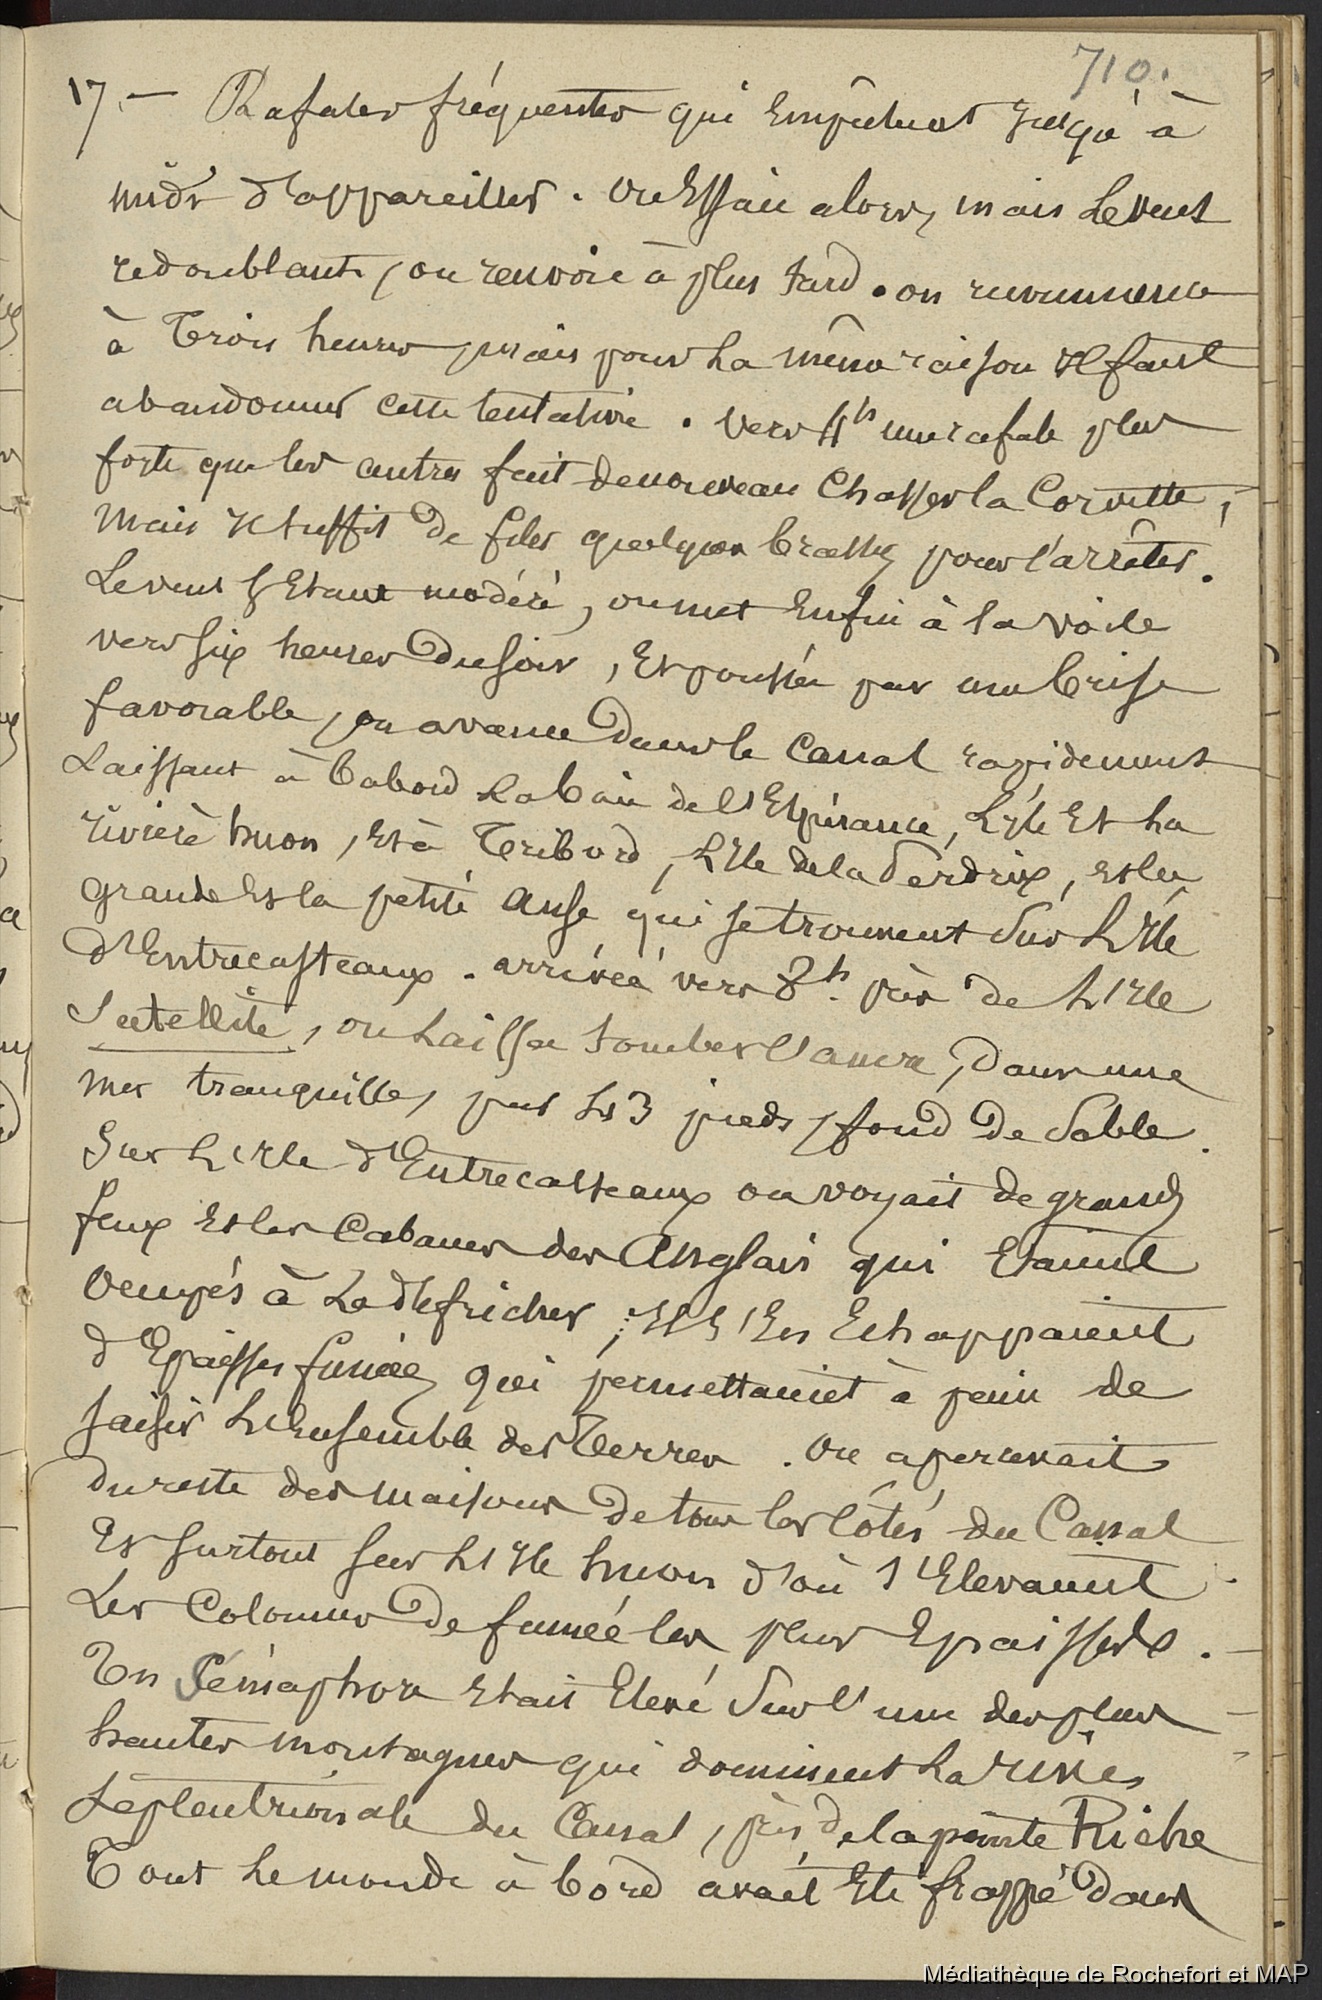 710.
17. — Rafales fréquentes qui empêchent jusqu'à
midi d'appareiller. On Essaie alors, mais Levent
redoublant, on renvoie à plus tard. on recommence
à Trois heures, mais pour La même raison Il faut
abandonner cette tentative. Vers 4h une rafale plus
forte que les autres fait denouveau Chasser la Corvette,
mais Il suffit De filer quelques brasses pour l'arrêter.
Levent s'Etant modéré, on met Enfin à la voile
vers six heures Du soir, Et poussée par une brise
favorable, on avance Dans le Canal rapidement
Laissant à babord La baie de l'Espérance, L'Ile Et La
rivière huon, Et à Tribord, L'Ile de la Perdrix, et la
grande Et la petite anse qui se trouvent Sur L'Ile
d'Entrecasteaux. arrivée vers 8h. près de L'Ile
Satellite, on Laissa tomber l'ancre, Dans une
mer tranquille, par 43 pieds, fond De Sable.
Sur L'Ile d'Entrecasteaux on voyait De grands
feux Et les Cabanes des Anglais qui Etaient
Occupés à La défricher, Et s'En Echappaient
d'Epaisses fumées qui permettaient à peine de
saisir L'Ensemble des Terres. On apercevait
Du reste des maisons De tous les côtés du Canal
Et surtout sur L'Ile huon d'où s'Elevaient
Les Colonnes De fumée les plus Epaisses.
Un Sémaphore Etait Elevé Sur l'une des plus
hautes montagnes qui dominent La rive
septentrionale du Canal, près De la pointe Riche
Tout Le monde à bord avait Eté frappé Dans
Médiathèque de Rochefort et MAP